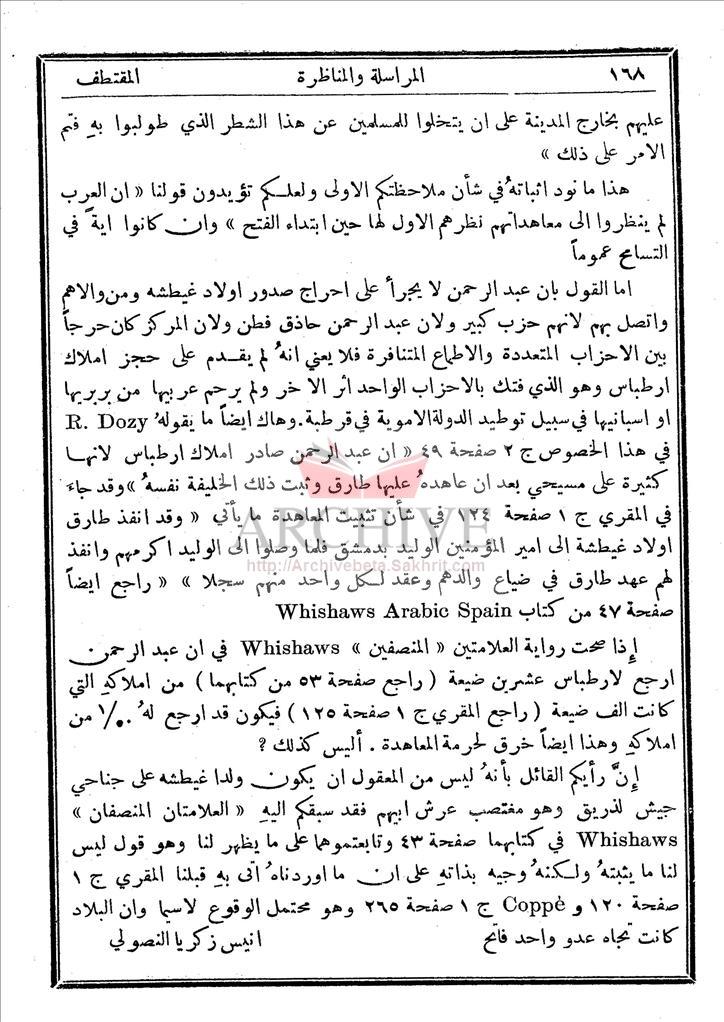 ١٦٨ المراسلة والمناظرة المقتطف
عليهم بخارج المدينة على ان يتخلوا للمسلمين عن هذا الشطر الذي طولبوا بهِ فتم
الامر على ذلك »
هذا ما نود اثباتهُ في شأن ملاحظتكم الاولى ولعلكم تؤيدون قولنا « ان العرب
لم ينظروا الى معاهداتهم نظرهم الاول لها حين ابتداء الفتح » وان كانوا اية في
التسامح عموماً
اما القول بان عبد الرحمن لا يجرأ على احراج صدور اولاد غيطشه ومن والاهم
واتصل بهم لانهم حزب كبير ولان عبد الرحمن حاذق فطن ولان المركز كان حرجاً
بين الاحزاب المتعددة والاطماع المتنافرة فلا يعني انهُ لم يقدم على حجز املاك
ارطباس وهو الذي فتك بالاحزاب الواحد أثر الاخر ولم يرحم عربيها من بربريها
او اسبانيها في سبيل توطيد الدولة الاموية في قرطبة. وهاك ايضاً ما يقولهُ R. Dozy
في هذا الخصوص ج ٢ صفحة ٤٩ « ان عبد الرحمن صادر املاك ارطباس لانها
كثيرة على مسيحي بعد ان عاهدهُ عليها طارق وثبت ذلك الخليفة نفسهُ » وقد جاء
في المقري ج ١ صفحة ١٢٤ في شأن تثبيت المعاهدة ما يأتي « وقد انفذ طارق
ARCHIVE
اولاد غيطشة الى امير المؤمنين الوليد بدمشق فلما وصلوا الى الوليد اكرمهم وانفذ
http://Archivebeta.Sakhrit.com
لهم عهد طارق في ضياع والدهم وعقد لكل واحد منهم سجلا » « راجع ايضاً
صفحة ٤٧ من كتاب Whishaws Arabic Spain
إذا صحت رواية العلامتين « المنصفين » Whishaws في ان عبد الرحمن
ارجع لارطباس عشرين ضيعة ( راجع صفحة ٥٣ من كتابهما ) من املاكهِ التي
كانت الف ضيعة ( راجع المقري ج ١ صفحة ١٢٥ ) فيكون قد ارجع لهُ من
املاكهِ وهذا ايضاً خرق لحرمة المعاهدة . أليس كذلك ?
إنَّ رأيكم القائل بأنهُ ليس من المعقول ان يكون ولدا غيطشه على جناحي
جيش لذريق وهو مغتصب عرش ابيهم فقد سبقكم اليهِ « العلامتان المنصفان »
Whishaws في كتابهما صفحة ٤٣ وتابعتموهما على ما يظهر لنا وهو قول ليس
لنا ما يثبتهُ ولكنهُ وجيه بذاته على ان ما اوردناهُ اتى بهِ قبلنا المقري ج ١
صفحة ١٢٠ و Coppè ج ١ صفحة ٢٦٥ وهو محتمل الوقوع لاسيما وان البلاد
كانت تجاه عدو واحد فاتح انيس زكريا النصولي